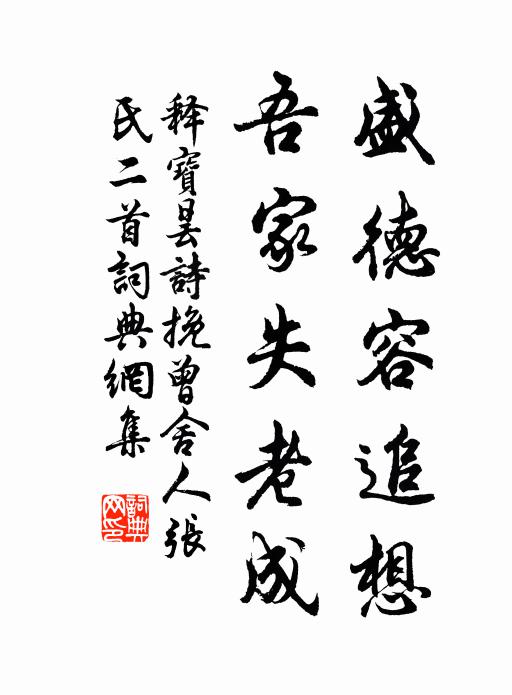 盛德容追想
吾家失老成
釋寶曇詩挽曾舍人張
氏二首詞典網集
詞典
网印